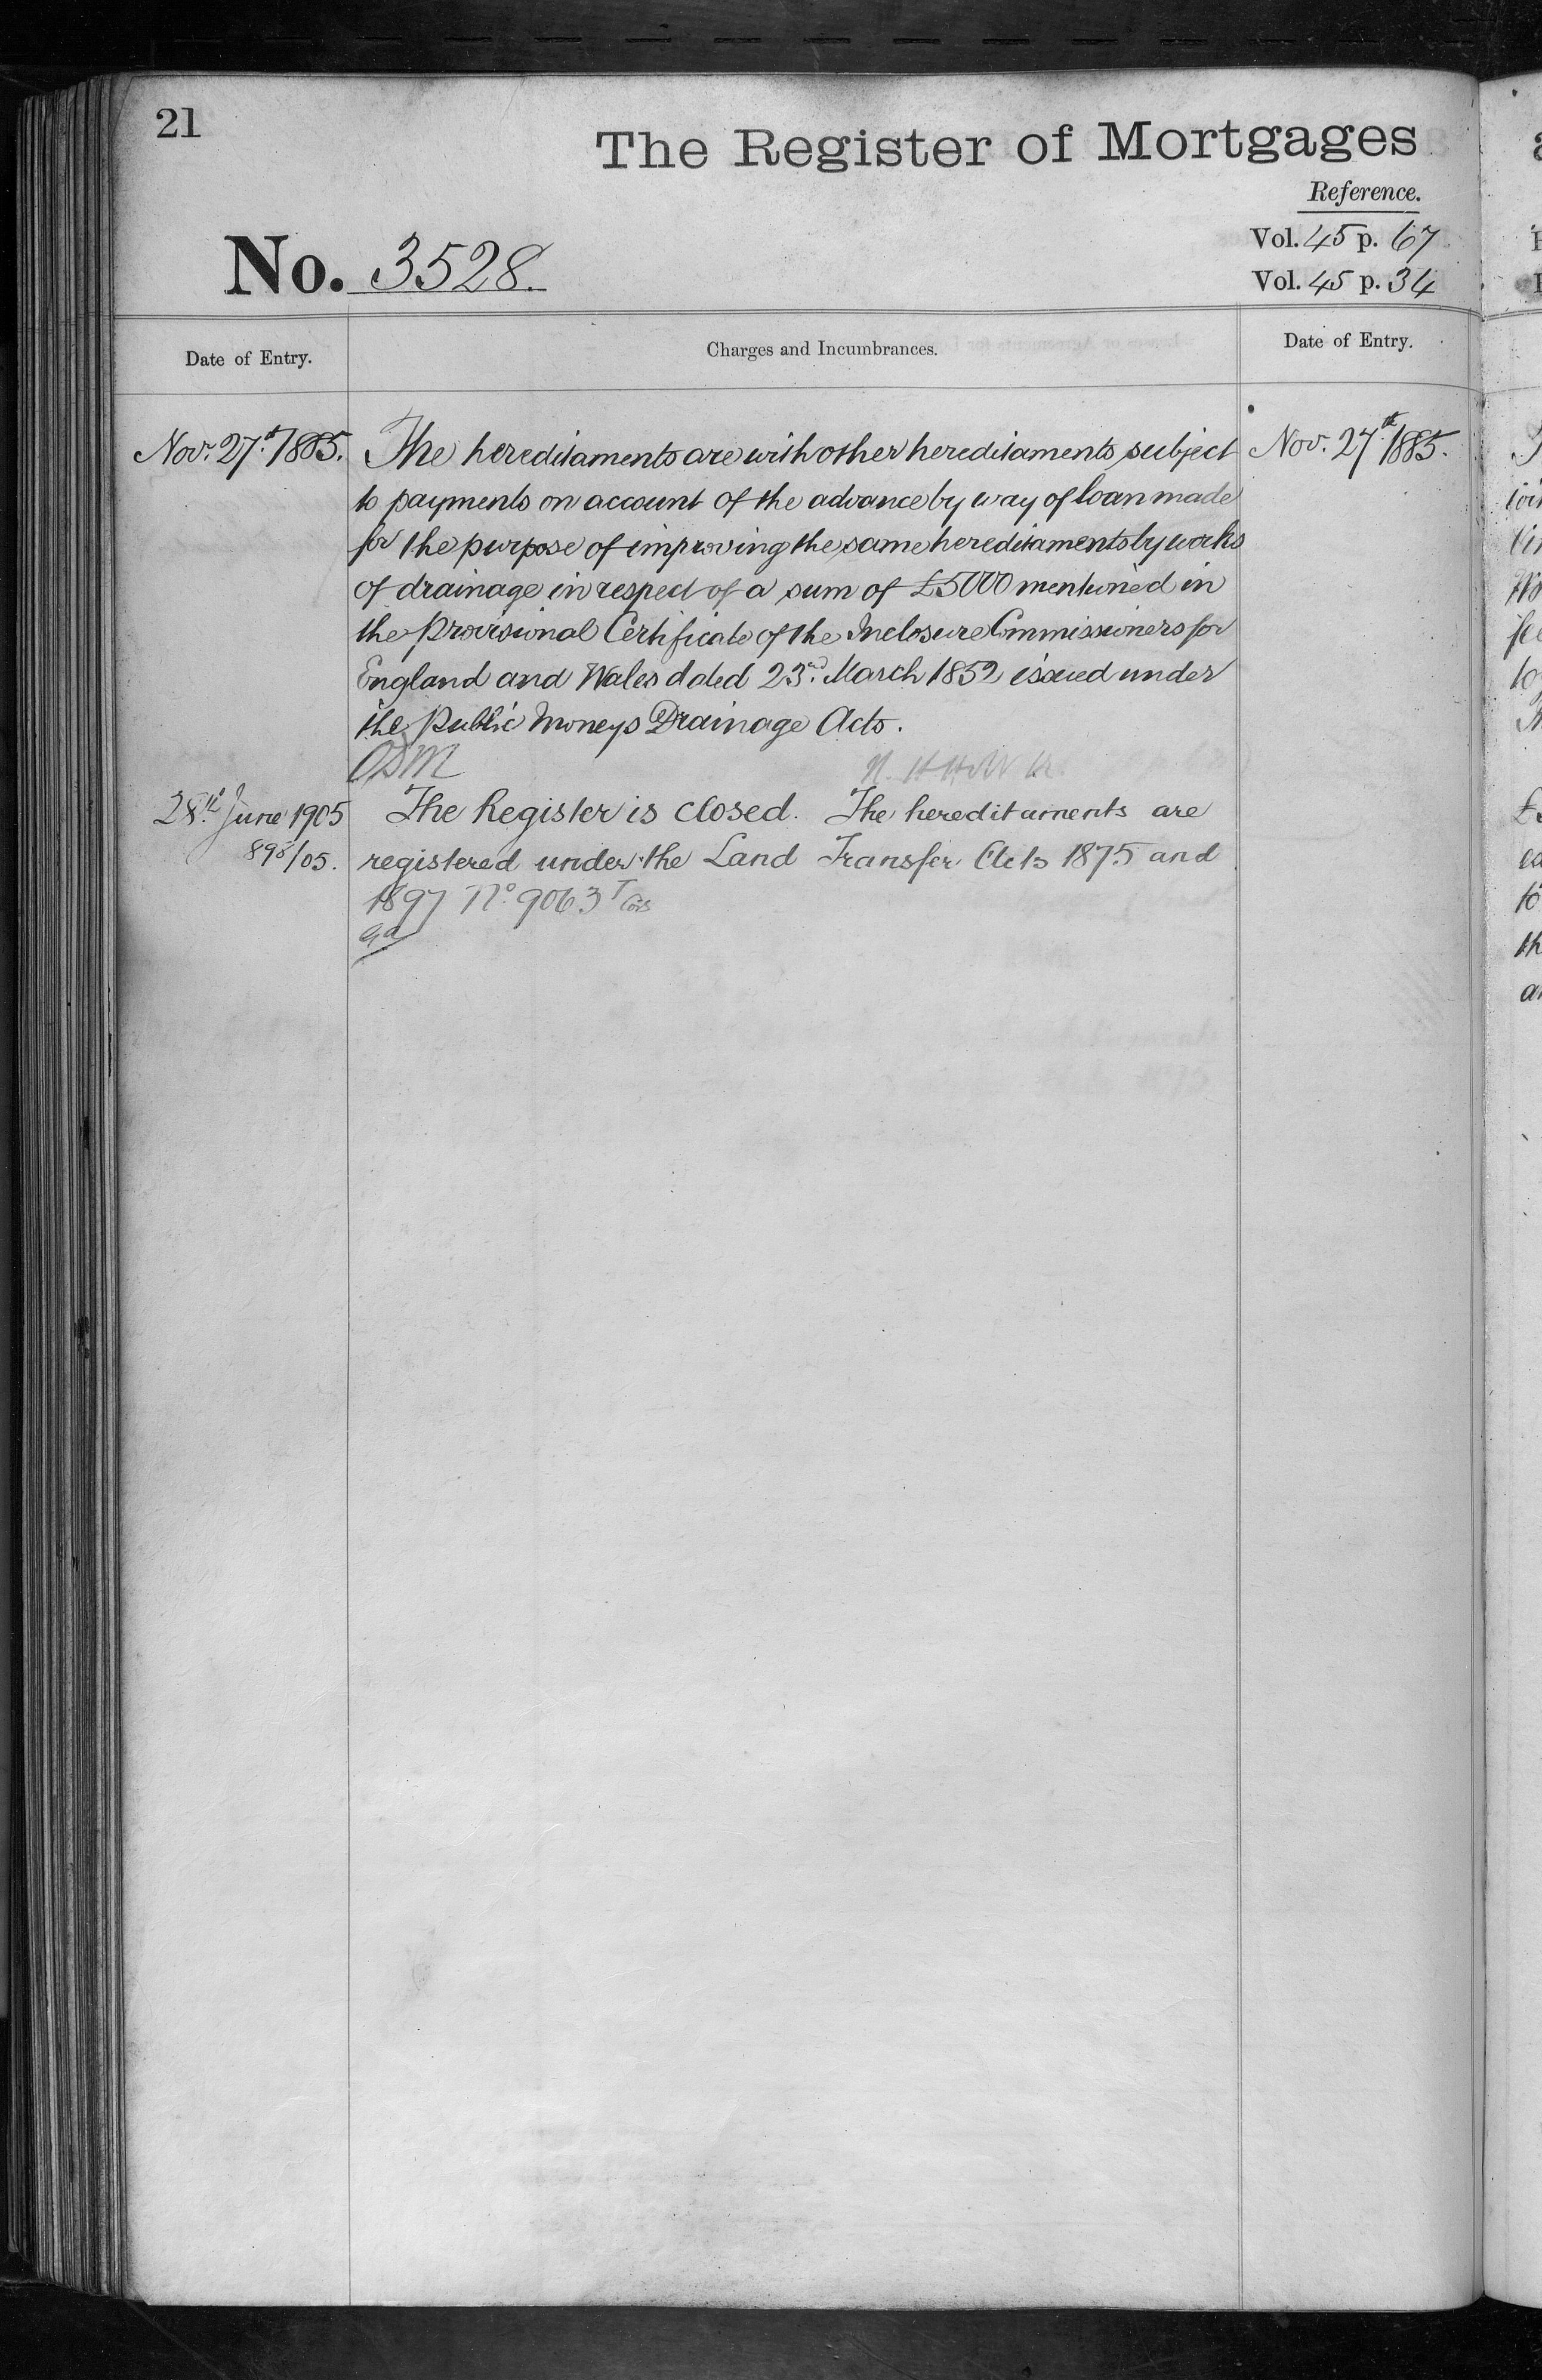 21
The Register of Mortgages
Reference.
Vol. 45 p. 67
No. 3528.
Vol. 45 p. 34
Date of Entry.
Charges and Incumbrances.
Date of Entry.
Nov. 27th 1885.
The hereditaments are with other hereditaments subject
to payments on account of the advance by way of loan made
for the purpose of improving the same hereditaments by works
of drainage in respect of a sum of £5000 mentioned in
the Provisional Certificate of the Inclosure Commissioners for
England and Wales dated 23rd March 1852 issued under
the Public Moneys Drainage Acts.
Nov. 27th 1885.
28th June 1905
/05.
The Register is closed. The hereditaments are
registered under the Land Transfer Acts 1875 and
1897 No. 9063